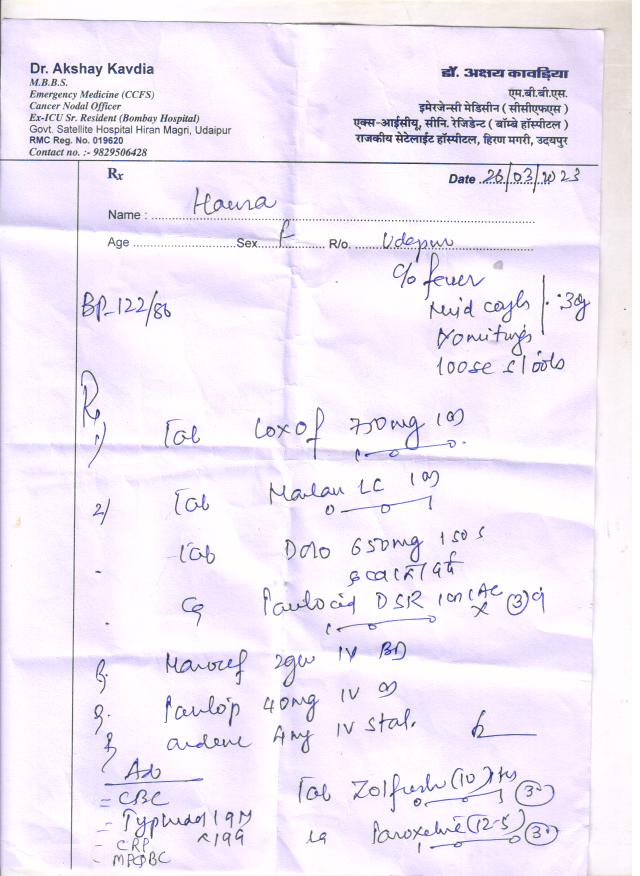 Dr. Akshay Kavdia
M.B.B.S.
Emergency Medicine (CCFS)
Cancer Nodal Officer
Ex-ICU Sr. Resident (Bombay Hospital)
Govt. Satellite Hospital Hiran Magri, Udaipur
RMC Reg. No. 019620
Contact no. :- 9829506428
डॉ. अक्षय कावड़िया
एम.बी.बी.एस.
इमेरजेन्सी मेडिसीन (सीसीएफएस)
एक्स-आईसीयू, सीनि. रेजिडेन्ट (बॉम्बे हॉस्पीटल)
राजकीय सेटेलाईट हॉस्पीटल, हिरण मगरी, उदयपुर
Rx
Date 26/03/2023
Name :
Age Sex f R/o. Udaipur
c/o fever
BP-122/86
vomitings
loose stools
Rx
1) Tab Loxof 750mg 1 OD
2) Tab LC 1 OD
Tab Dolo 650mg 1 SOS
DSR 1 OD AC x 3d
2gm IV BD
Pantop 40mg IV OD
4mg IV stat.
Adv
= CBC
- Typhidot IgM
IgG
- CRP
- MP QBC
Tab Zolfresh (10) 1 hs
Paroxetine (12.5)